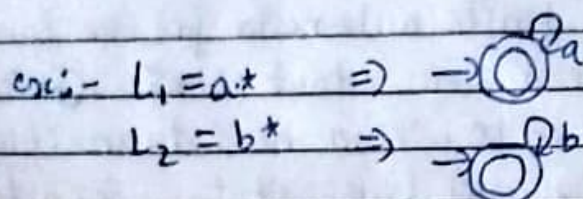 ex:- L₁ = a* ⇒ → a
L₂ = b* ⇒ → b